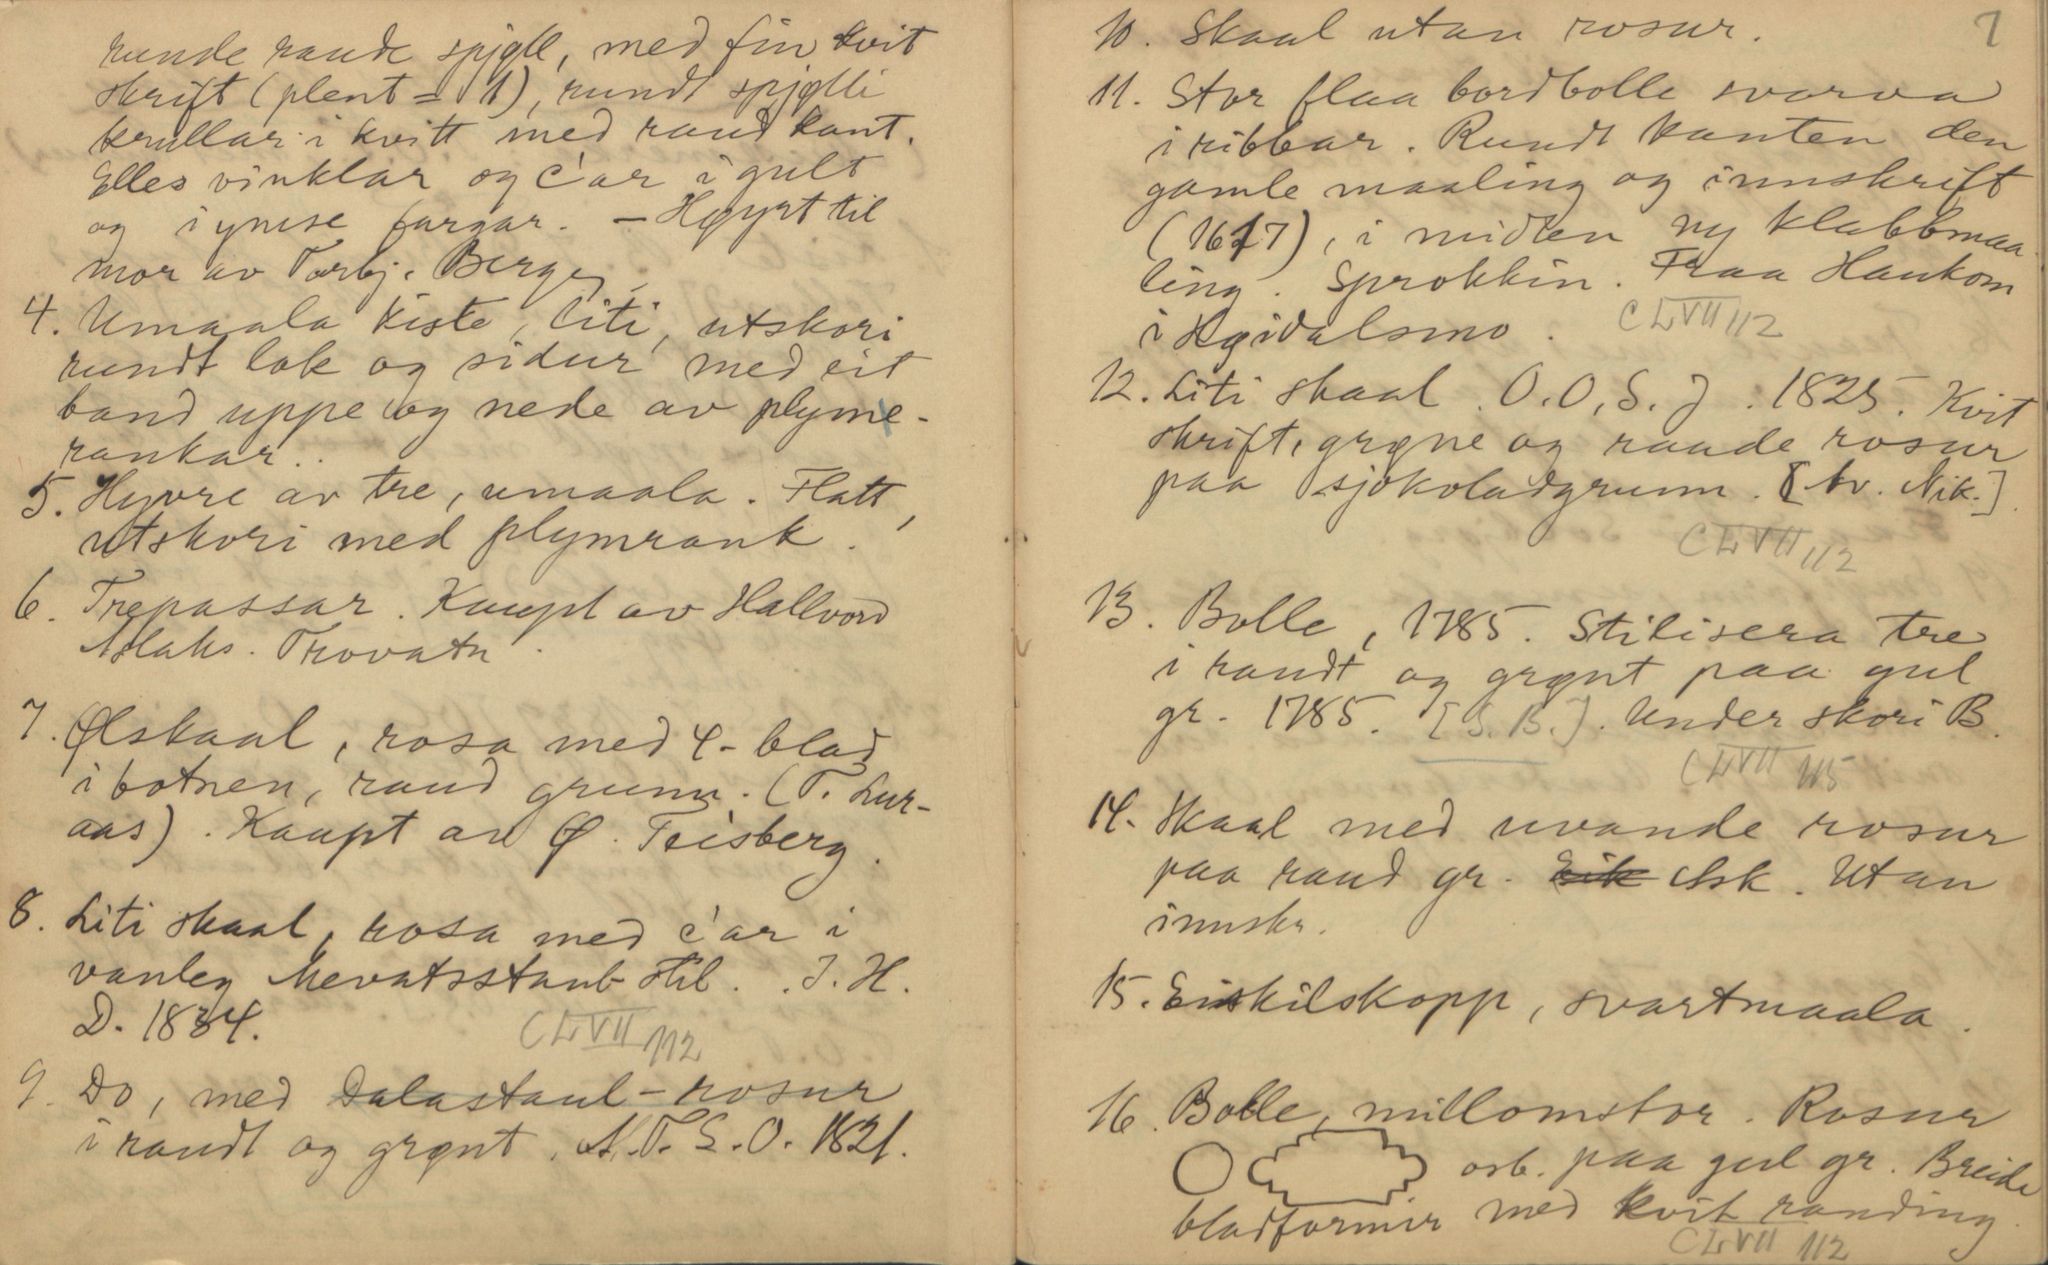 runde raude spjøll, med fin kvit
skrift (plent = 1), rundt spjølli
krullar i kvitt med raud kant.
Elles vinklar og c'ar i gult
og i ymse fargar. – Høyrt til
mor av Torbj. Berge,
4. Umaala kiste, liti, utskori
rundt lok og sidur med eit
band uppe og nede av plyme-
rankar..
5. Hyvre av tre, umaala. Flatt,
utskori med plymrank.
6. Trepassar. Kaupt av Hallvord
Aslaks. Trovatn.
7. Ølskaal, rosa med 4-blad
i botnen, raud grunn. (T. Lur-
aas). Kaupt av Ø. Teisberg.
8. Liti skaal, rosa med c'ar i
vanleg Mevatsstaul-stil. J. H.
D. 1834.
CLVII 112
9. Do, med Dalastaul-rosur
i raudt og grønt. A. T. S. O. 1821.
7
10. Skaal utan rosur.
11. Stor flaa bordbolle svarva
i ribbar. Rundt kanten den
gamle maaling og innskrift
(1617), i midten ny klabbmaa-
ling. Sprokkin. Fraa Haukom
i Høidalsmo.
CLVII 112
12. Liti skaal. O.O.S.J. 1825. Kvit
skrift, grøne og raude rosur
paa sjokoladgrunn. [Av. Nik.].
CLVII 112
13. Bolle, 1785. Stilisera tre
i raudt og grønt paa gul
gr. 1785. [S.B.]. Under skori B.
CLVII 115
14. Skaal med uvande rosur
paa raud gr. Eik Ask. Utan
innskr.
15. Einskilskopp, svartmaala.
16. Bolle, millomstor. Rosur
osb. paa gul gr. Breide
bladformir med kvit randing.
CLVII 112